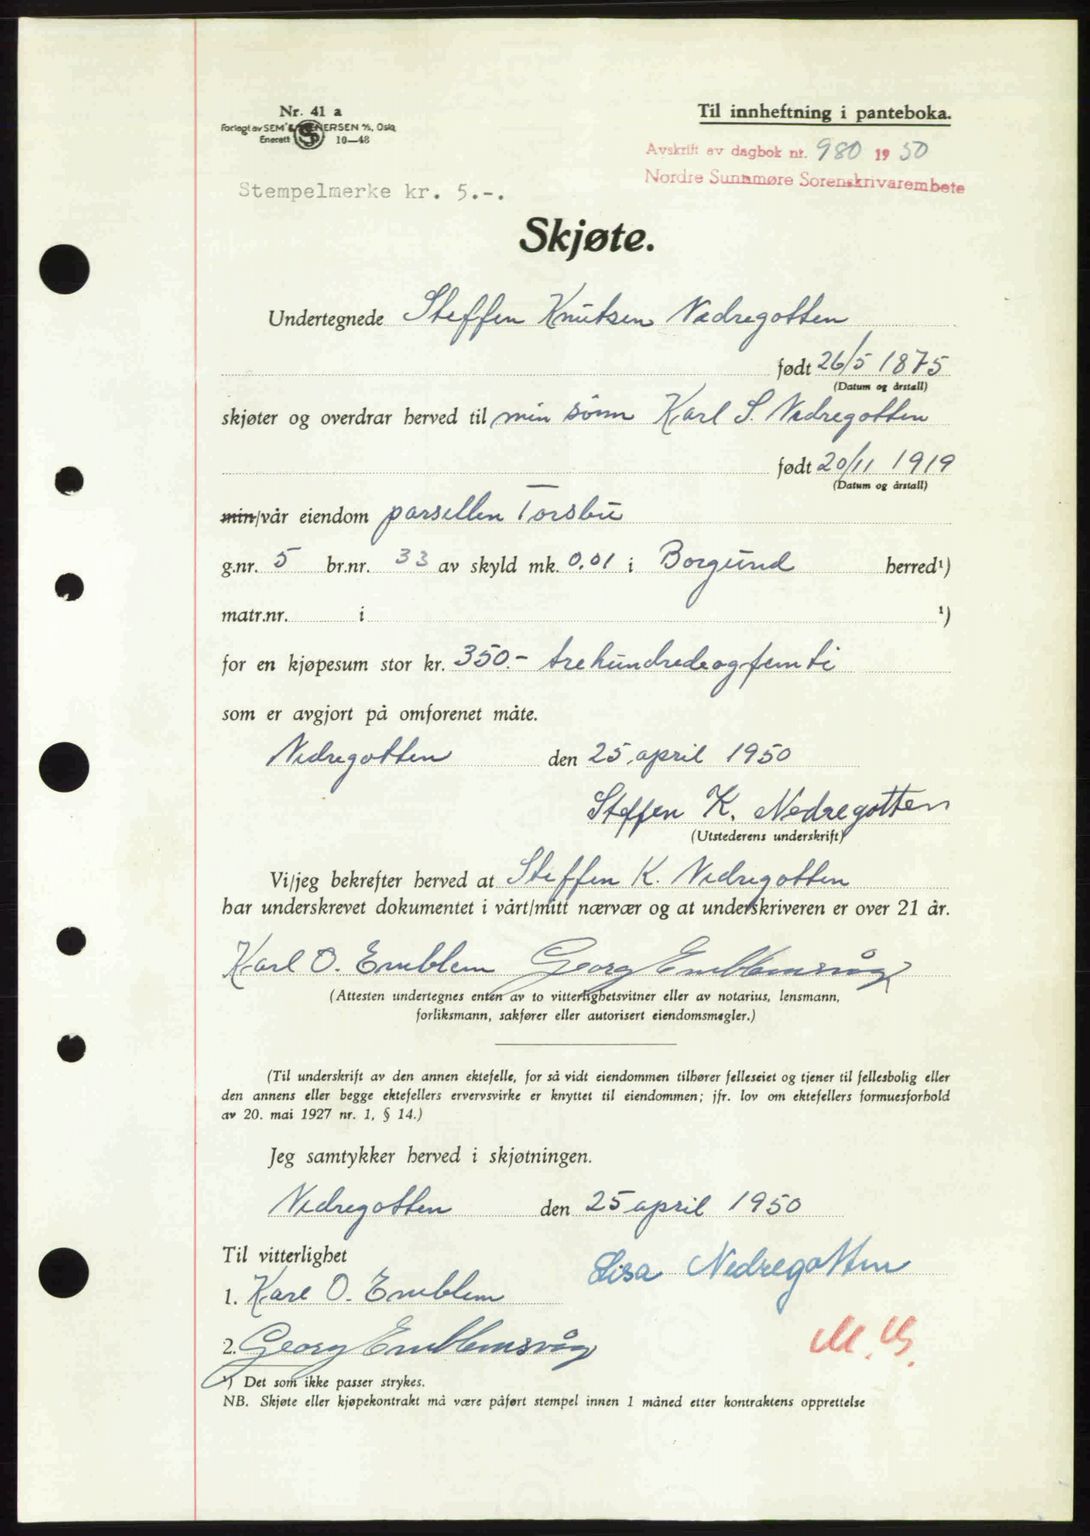 Nr. 41 a
Forlagt av SEM & STENERSEN A/S, Oslo
Enerett 10—48
Til innheftning i panteboka.
Avskrift av dagbok nr. 980 1950
Nordre Sunnmøre Sorenskrivarembete
Stempelmerke kr. 5.-.
Skjøte.
Undertegnede Steffen Knutsen Nedregotten
født 26/5 1875
(Datum og årstall)
skjøter og overdrar herved til min sönn Karl S. Nedregotten
født 20/11 1919
(Datum og årstall)
min/vår eiendom parsellen Torsbu
g.nr. 5 br.nr. 33 av skyld mk. 0,01 i Borgund herred¹)
matr.nr. i ¹)
for en kjøpesum stor kr. 350.- trehundredeogfemti
som er avgjort på omforenet måte.
Nedregotten den 25. april 1950
Steffen K. Nedregotten
(Utstederens underskrift)
Vi/jeg bekrefter herved at Steffen K. Nedregotten
har underskrevet dokumentet i vårt/mitt nærvær og at underskriveren er over 21 år.
Karl O. Emblem Georg Emblemsvåg
(Attesten undertegnes enten av to vitterlighetsvitner eller av notarius, lensmann,
forliksmann, sakfører eller autorisert eiendomsmegler.)
(Til underskrift av den annen ektefelle, for så vidt eiendommen tilhører felleseiet og tjener til fellesbolig eller
den annens eller begge ektefellers ervervsvirke er knyttet til eiendommen; jfr. lov om ektefellers formuesforhold
av 20. mai 1927 nr. 1, § 14.)
Jeg samtykker herved i skjøtningen.
Nedregotten den 25 april 1950
Til vitterlighet
Lisa Nedregotten
1. Karl O. Emblem
2. Georg Emblemsvåg
M. G.
¹) Det som ikke passer strykes.
NB. Skjøte eller kjøpekontrakt må være påført stempel innen 1 måned etter kontraktens opprettelse